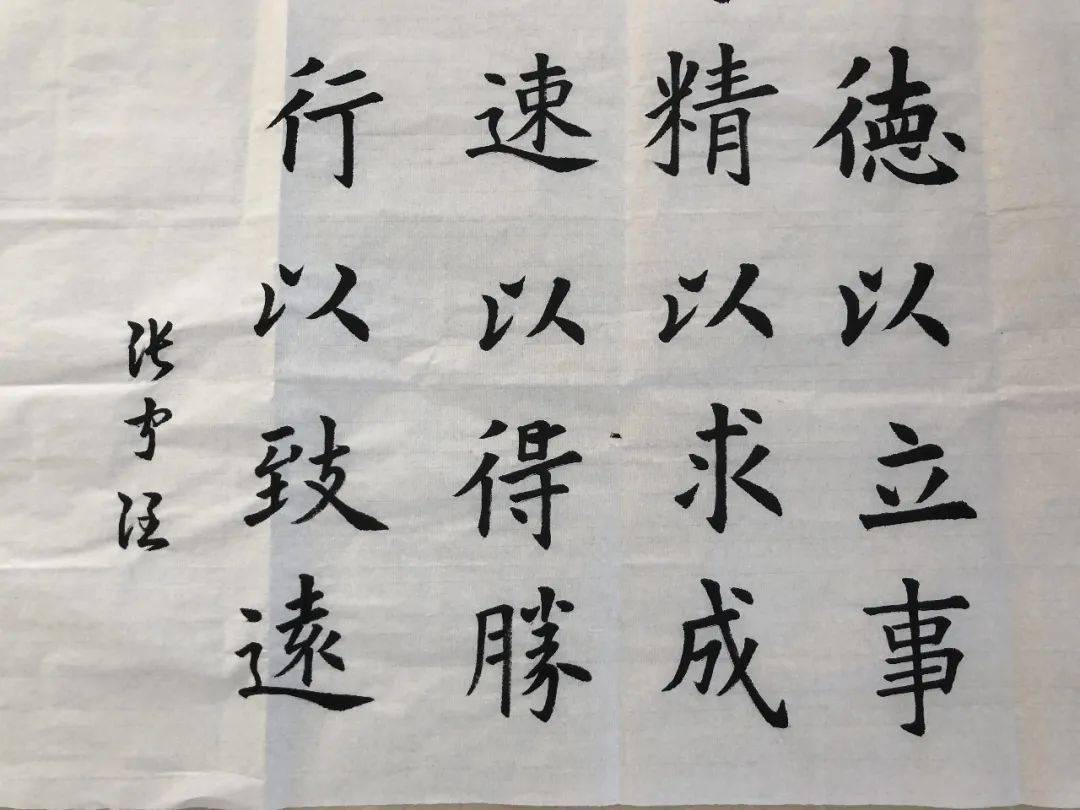 德以立事
精以求成
速以得勝
行以致遠
张宇